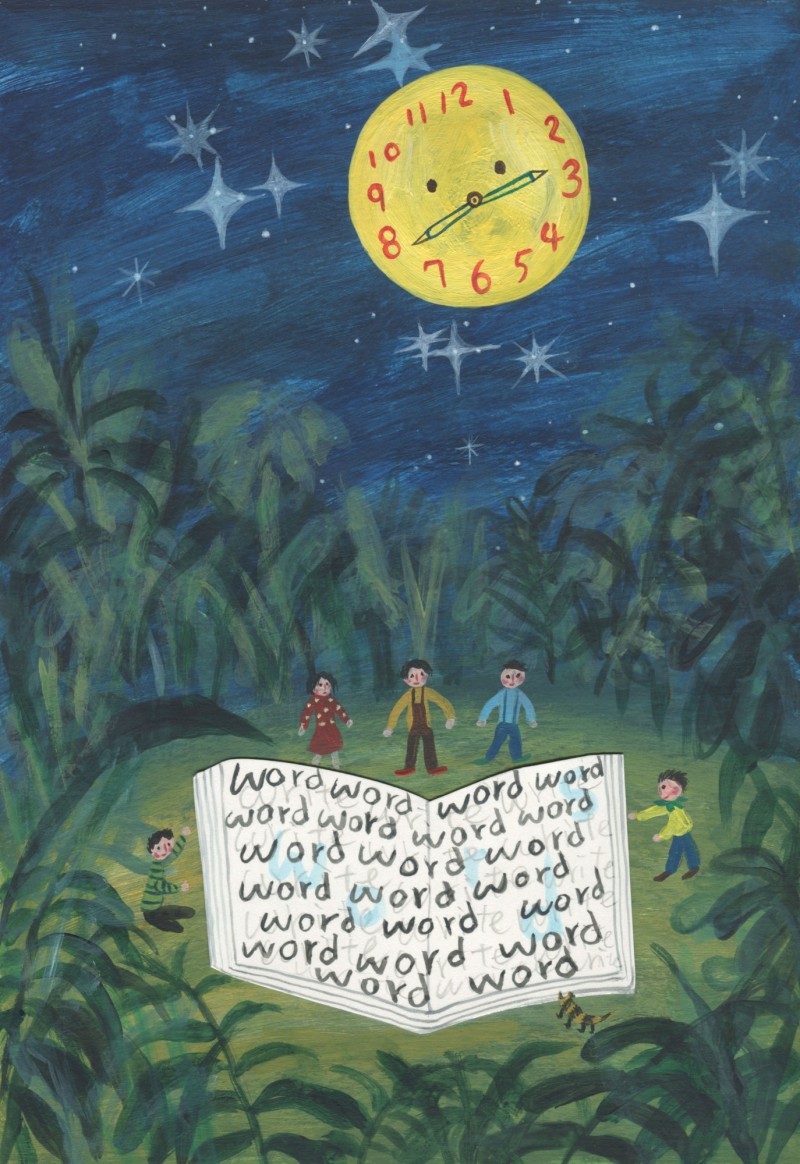 11 12 1
10 2
9 3
8 4
7 6 5
word word word word
word word word word
word word word
word word word
word word word
word word word
word word